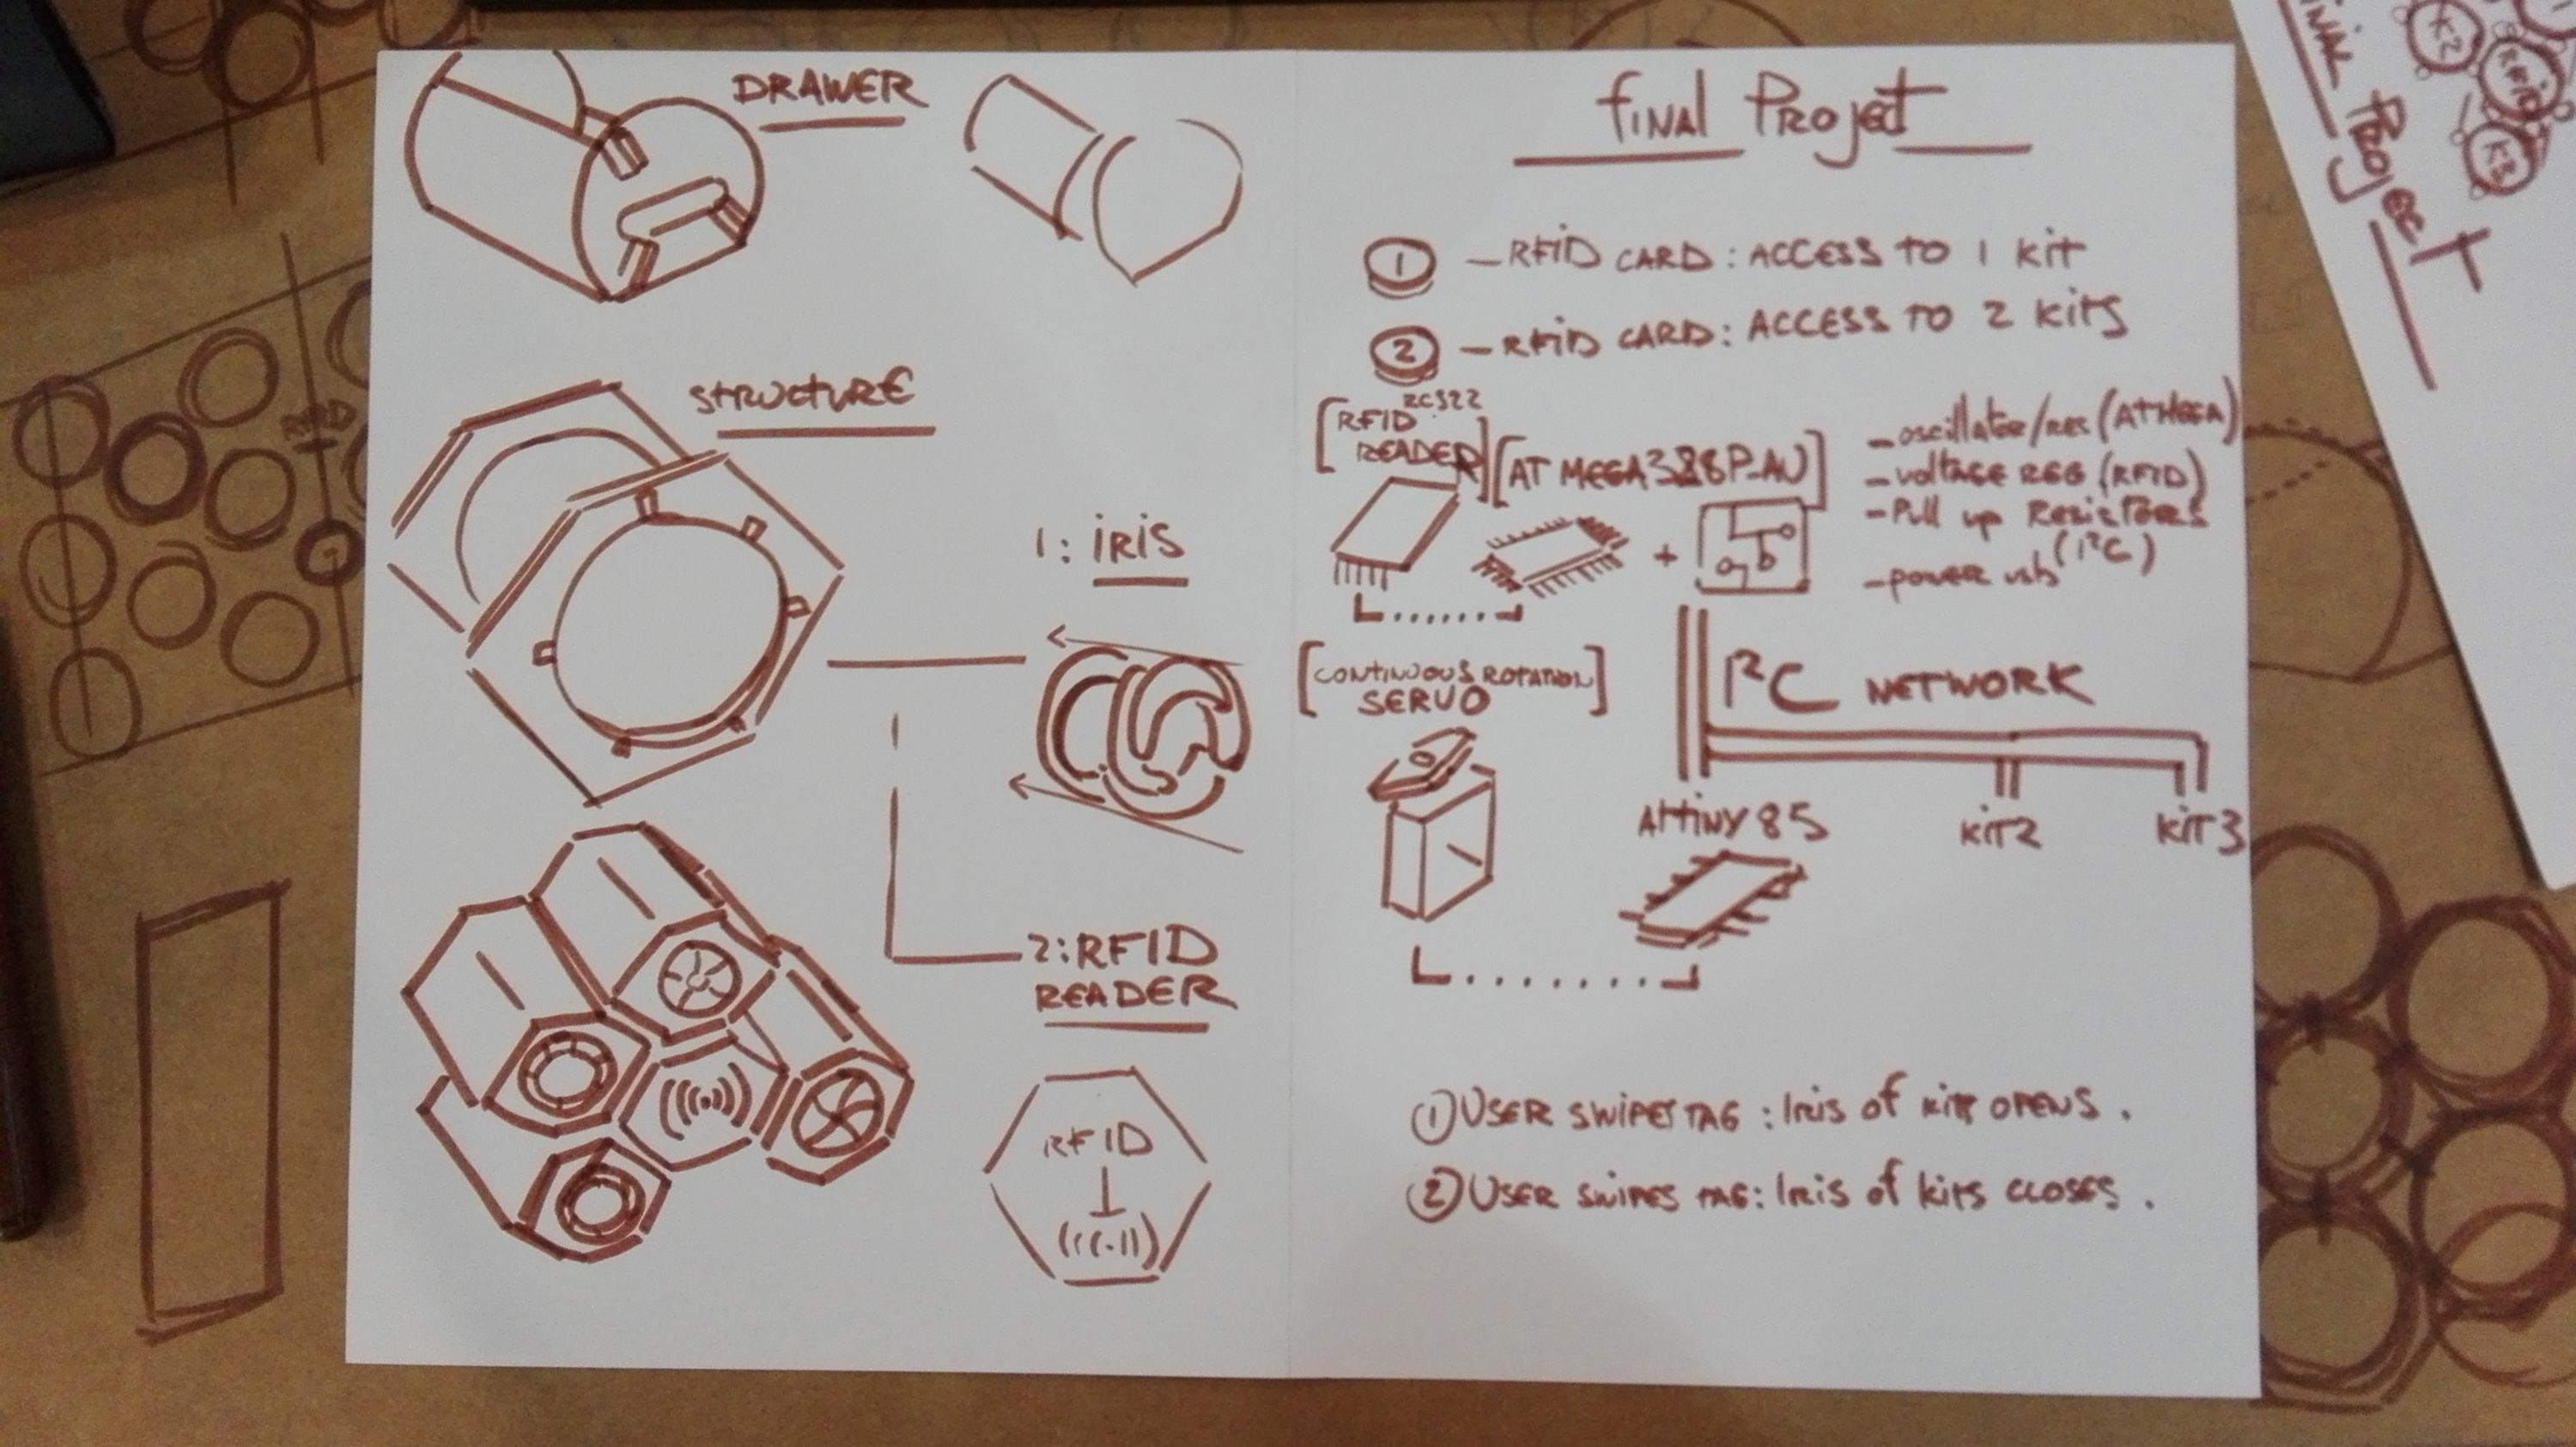 DRAWER
STRUCTURE
1: IRIS
2: RFID
READER
RFID
FINAL PROJECT
1 - RFID CARD: ACCESS TO 1 KIT
2 - RFID CARD: ACCESS TO 2 KITS
RC522
[RFID
READER]
[AT MEGA328P-AU]
- oscillator/res (ATMEGA)
- voltage REG (RFID)
- Pull up Resistors
(I²C)
- power usb
[CONTINUOUS ROTATION
SERVO]
I²C NETWORK
Attiny 85
KIT2
KIT3
1 USER SWIPES TAG: Iris of kits OPENS.
2 USER SWIPES TAG: Iris of kits CLOSES.
RFID
FINAL PROJECT
K2
RFID
K3